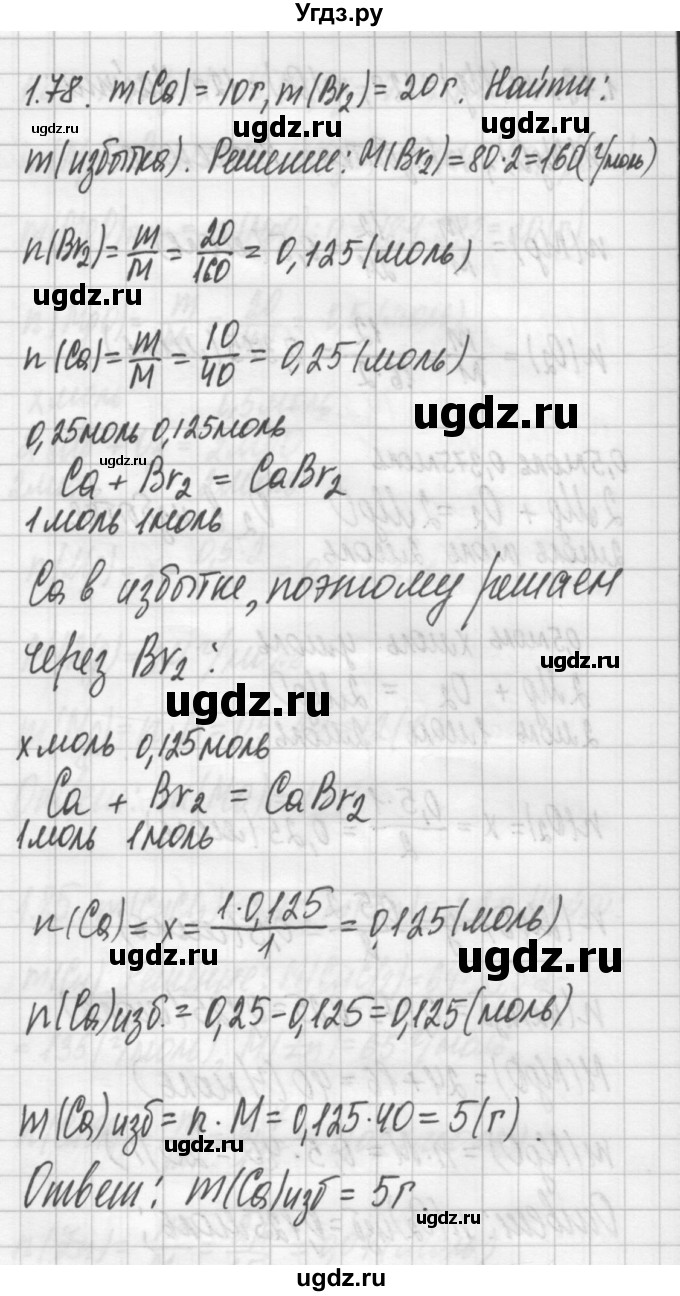 Угдз.ру
1.78. m(Ca) = 10г, m(Br₂) = 20г. Найти:
ugdz.ru ugdz.ru ugdz.ru
m(избытка). Решение: M(Br₂) = 80·2 = 160(г/моль)
n(Br₂) = m/M = 20/160 = 0,125(моль)
ugdz.ru
n(Ca) = m/M = 10/40 = 0,25(моль)
ugdz.ru
0,25моль 0,125моль
ugdz.ru
Ca + Br₂ = CaBr₂
1моль 1моль
Ca в избытке, поэтому решаем
через Br₂:
ugdz.ru
ugdz.ru
x моль 0,125моль
Ca + Br₂ = CaBr₂
1моль 1моль
n(Ca) = x = 1·0,125/1 = 0,125(моль)
ugdz.ru ugdz.ru
n(Ca)изб. = 0,25-0,125 = 0,125(моль)
m(Ca)изб = n·M = 0,125·40 = 5(г).
ugdz.ru
Ответ: m(Ca)изб = 5г.
ugdz.ru
ugdz.ru